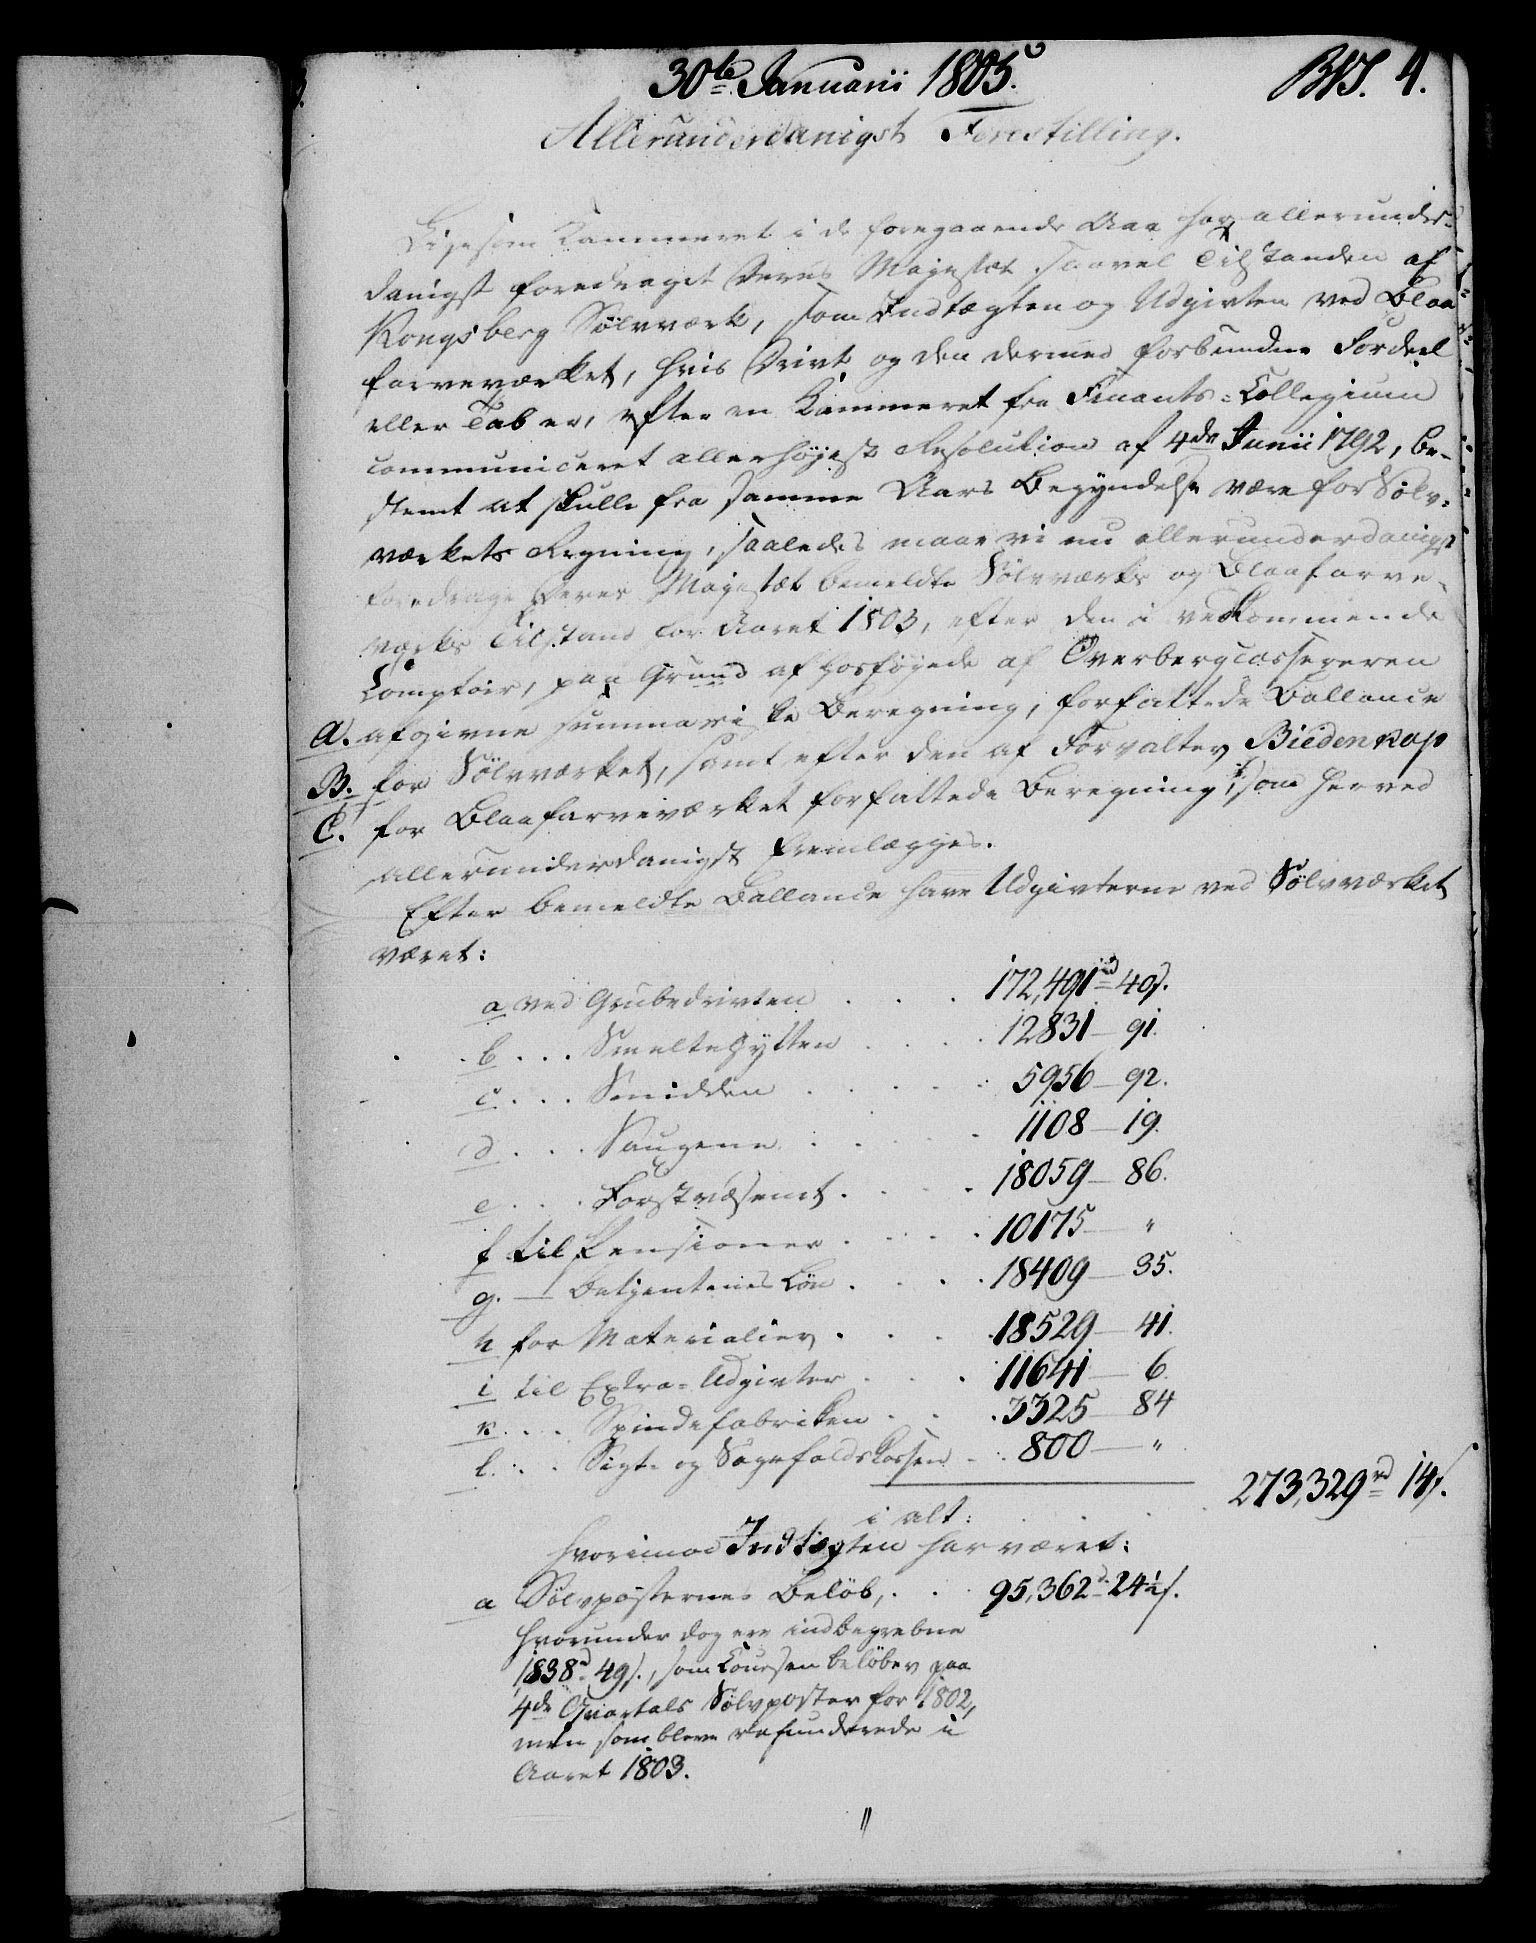 30te Januarii 1805.
BVS. 4.
Allerunderdanigst Forestilling.
Ligesom Kammeret i de foregaaende Aar har allerunder-
danigst foredraget Deres Majestæt saavel Tilstanden af
Kongsberg Sølvværk, som Indtægten og Udgivten ved Blaa-
farveværket, hvis Drivt og den dermed forbundne Fordeel
eller Tab er, efter en Kammeret fra Finants-Collegium
communiceret allerhøjest Resolution af 4de Junii 1792, be-
stemt at skulle fra samme Aars Begyndelse være for Sølv-
værkets Regning, saaledes maae vi nu allerunderdanigst
foredrage Deres Majestæt bemeldte Sølvværks og Blaafarve-
værks Tilstand for Aaret 1803, efter den i vedkommende
Comptoir, paa Grund af hosføjede af Overbergcassereren
A. afgivne summariske Beregning, forfattede Ballance
B. for Sølvværket, samt efter den af Forvalter Biedenkap
C. for Blaafarveværket forfattede Beregning, som herved
allerunderdanigst fremlægges.
Efter bemeldte Ballance have Udgivterne ved Sølvværket
været:
a ved Grubedrivten . . . 172,491rd 40s.
b . . . Smeltehytten . . . . 12831 – 91.
c . . . Smidden . . . . . 5956 – 92.
d . . . Saugene . . . . . 1108 – 19.
e . . . Forstvæsenet . . . . 18059 – 86.
f til Pensioner . . . . 10175 – "
g. — Betjentenes Løn . . . . 18409 – 35.
h for Materialier . . . . 18529 – 41.
i til Extra-Udgivter . . . 11641 – 6.
k . . . Spindefabriken . . . 3325 – 84
l . . . Sigt- og Sagefaldskassen . . 800 – "
i alt: . . . 273,329rd 14s.
hvorimod Indtægten har været:
a Sølvposternes Beløb, . . . 95,362d 24½s.
hvorunder dog ere indbegrebne
1838d 49s., som Coursen beløber paa
4de Qvartals Sølvposter for 1802,
men som bleve refunderede i
Aaret 1803.
//